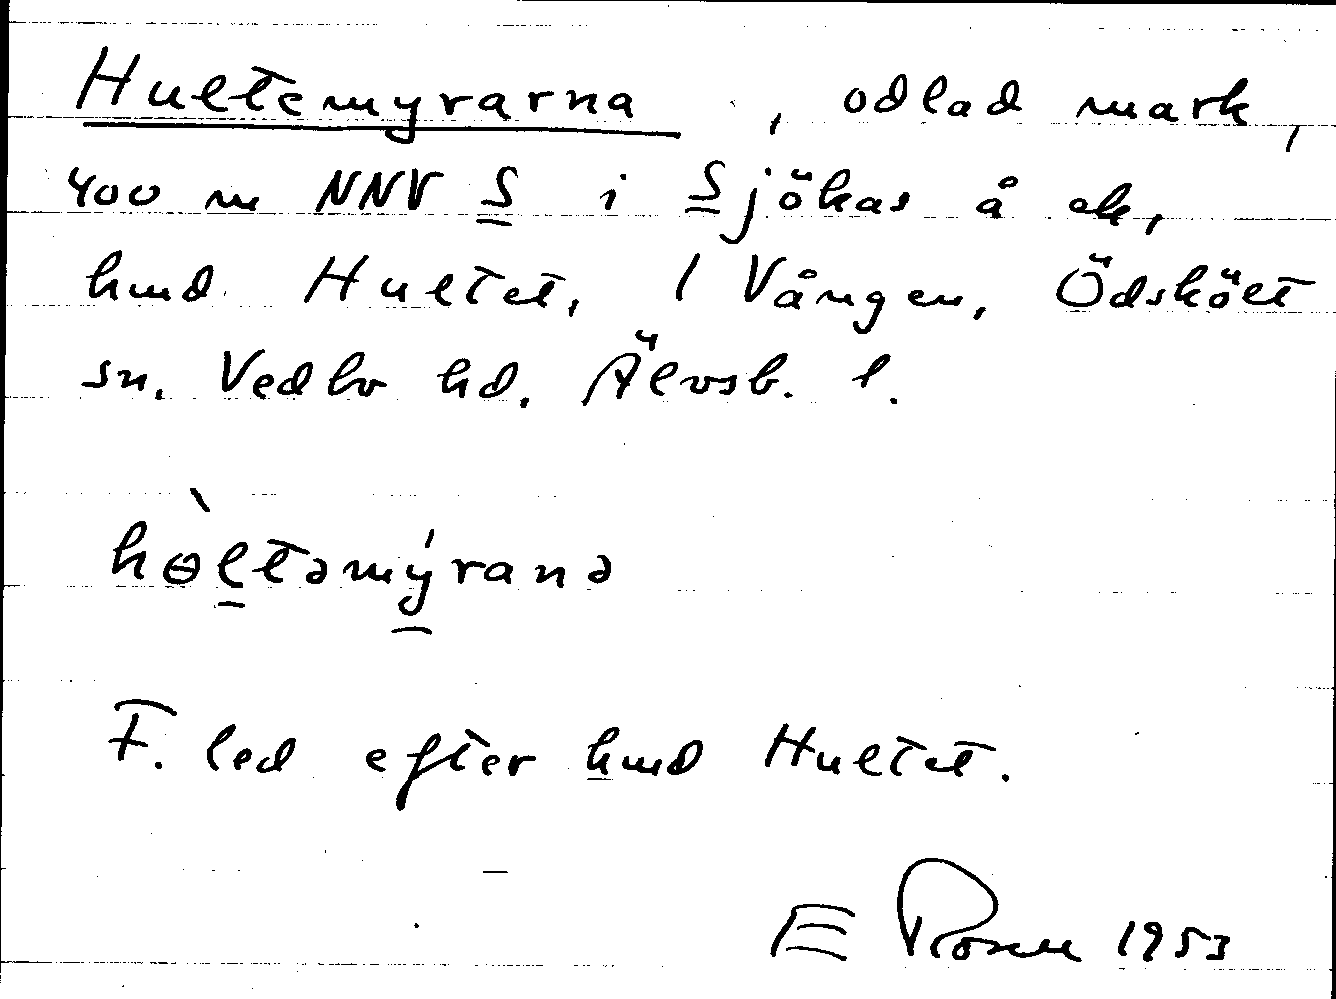 Hultemyrarna, odlad mark,
400 m NNV S i Sjökas å ek,
hmd Hultet, 1 Vången, Ödskölt
sn. Vedbo hd. Älvsb. l.
hɵ̀ltəmýranə
F. led efter hmd Hultet.
E Rosell 1953